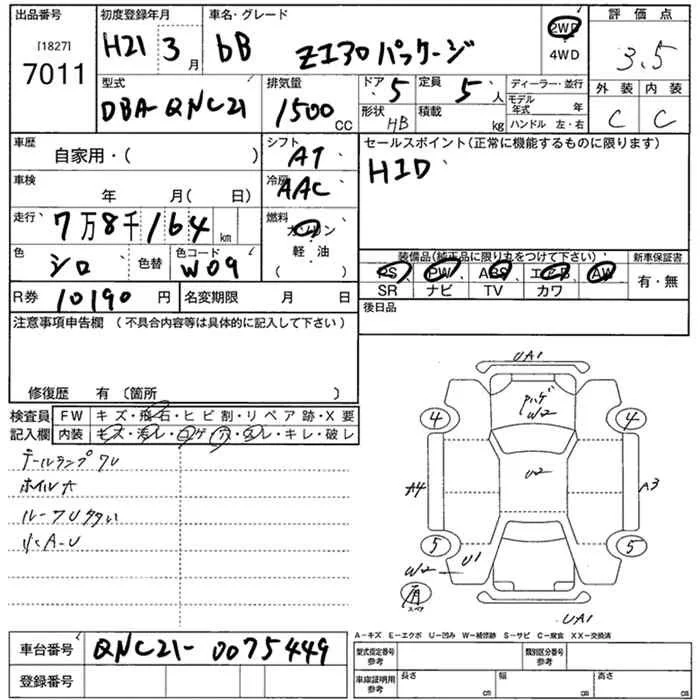 出品番号 初度登録年月 車名・グレード 2WD 評価点
[1827]
7011 H21 3月 bB 4WD 3.5
型式 排気量 ドア 5 定員 5人 ディーラー・並行 外装 内装
DBA-QNC21 1500cc 形状 HB 積載 kg モデル年式 年 C C
ハンドル 左・右
車歴 シフト セールスポイント(正常に機能するものに限ります)
自家用・( ) AT HID
車検 冷房
年 月( 日) AAC
走行 燃料
7万8千164km ガソリン
色 色コード 軽・油 装備品(純正品に限り丸をつけて下さい) 新車保証書
シロ 色替 W09 ( ) PS PW ABS エアB AW 有・無
SR ナビ TV カワ
R券 10190円 名変期限 月 日 後日品
注意事項申告欄 (不具合内容等は具体的に記入して下さい)
修復歴 有〔箇所 〕
検査員 FW キズ・飛石・ヒビ割・リペア跡・X要
記入欄 内装 キズ・汚レ・コゲ・穴・スレ・キレ・破レ
テールランプワレ
ホイルキズ
UA1
W2
4 4
A4 U2 A3
5 5
W2 U1
スペア
UA1
A-キズ E-エクボ U-凹み W-補修跡 S-サビ C-腐食 XX-交換済
車台番号 QNC21-0075449 型式指定番号 参考 類別区分番号 参考
登録番号 車庫証明用 参考 長さ cm 幅 cm 高さ cm